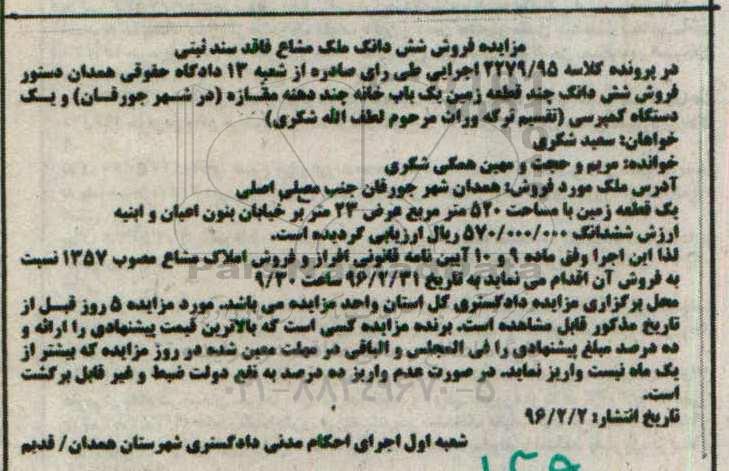 مزایده فروش شش دانگ ملک مشاع فاقد سند ثبتی
در پرونده کلاسه ۲۲۷۹/۹۵ اجرایی طی رای صادره از شعبه ۱۳ دادگاه حقوقی همدان دستور
فروش شش دانگ چند قطعه زمین یک باب خانه چند دهنه مغازه (در شهر جورقان) و یک
دستگاه کمپرسی (تقسیم ترکه وراث مرحوم لطف الله شکری)
خواهان: سعید شکری
خوانده: مریم و حجت و مهین همگی شکری
آدرس ملک مورد فروش: همدان شهر جورقان جنب مصلی اصلی
یک قطعه زمین با مساحت ۵۲۰ متر مربع عرض ۲۳ متر بر خیابان بدون اعیان و ابنیه
ارزش ششدانگ ۵۷۰/۰۰۰/۰۰۰ ریال ارزیابی گردیده است.
لذا این اجرا وفق ماده ۹ و ۱۰ آیین نامه قانونی افراز و فروش املاک مشاع مصوب ۱۳۵۷ نسبت
به فروش آن اقدام می نماید به تاریخ ۹۶/۲/۳۱ ساعت ۹/۳۰
محل برگزاری مزایده دادگستری کل استان واحد مزایده می باشد. مورد مزایده ۵ روز قبل از
تاریخ مذکور قابل مشاهده است. برنده مزایده کسی است که بالاترین قیمت پیشنهادی را ارائه و
ده درصد مبلغ پیشنهادی را فی المجلس و الباقی در مهلت معین شده در روز مزایده که بیشتر از
یک ماه نیست واریز نماید. در صورت عدم واریز ده درصد به نفع دولت ضبط و غیر قابل برگشت
است.
۰۲۱-۸۸۳۴۹۶۷۰-۵
تاریخ انتشار: ۹۶/۲/۲
شعبه اول اجرای احکام مدنی دادگستری شهرستان همدان/ قدیم